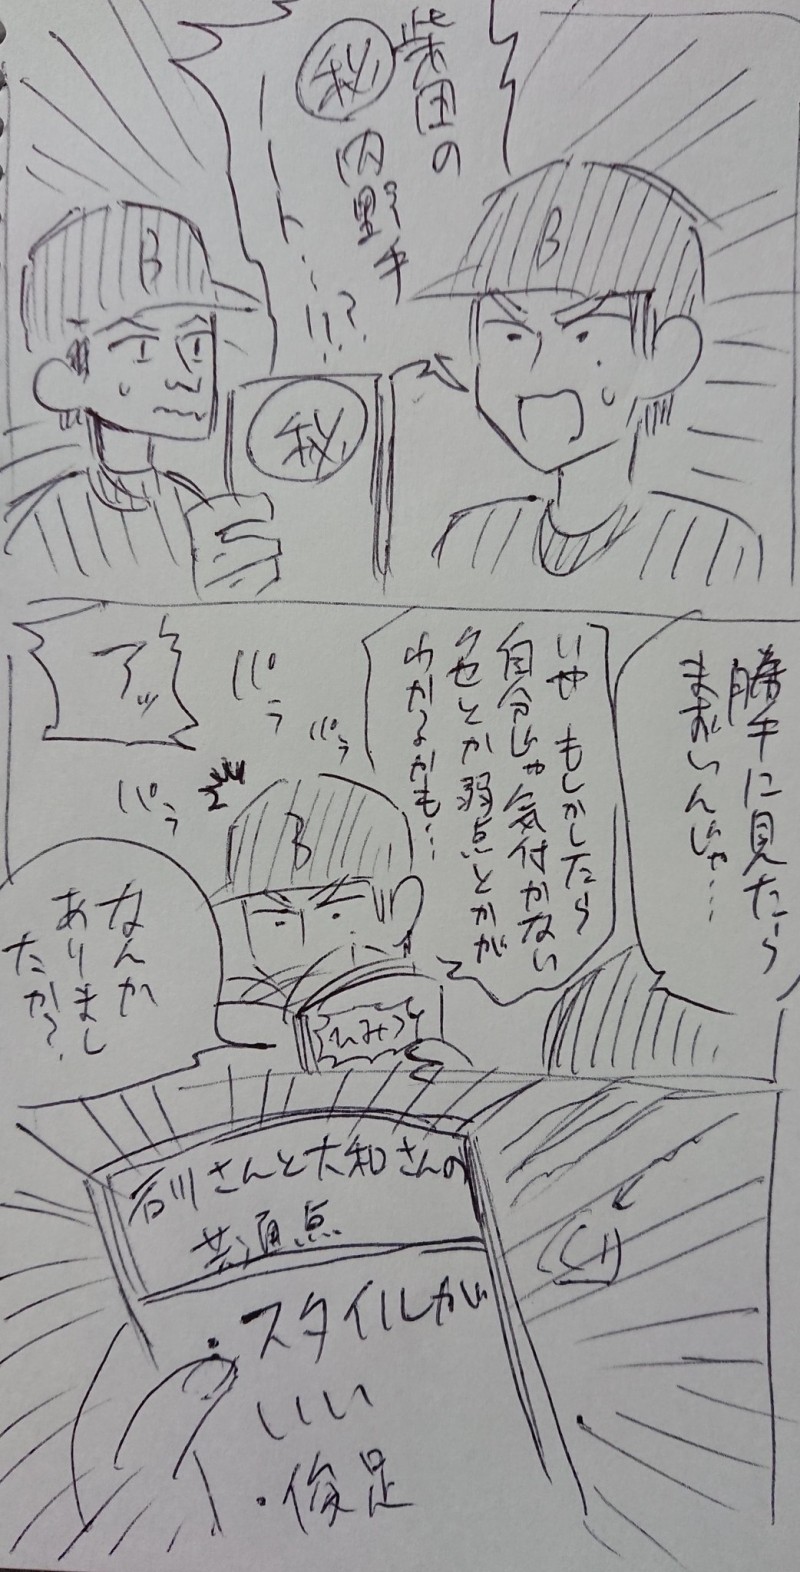 柴田の
㊙内野手
ノート…!!?
B
B
㊙
勝手に見たら
まずいんじゃ…
いや もしかしたら
自分じゃ気付かない
クセとか弱点とかが
わかるかも…
パラ
パラ
パラ
アッ
B
ひみつ
なんか
ありまし
たか?
石川さんと大和さんの
共通点
・スタイルが
いい
・俊足